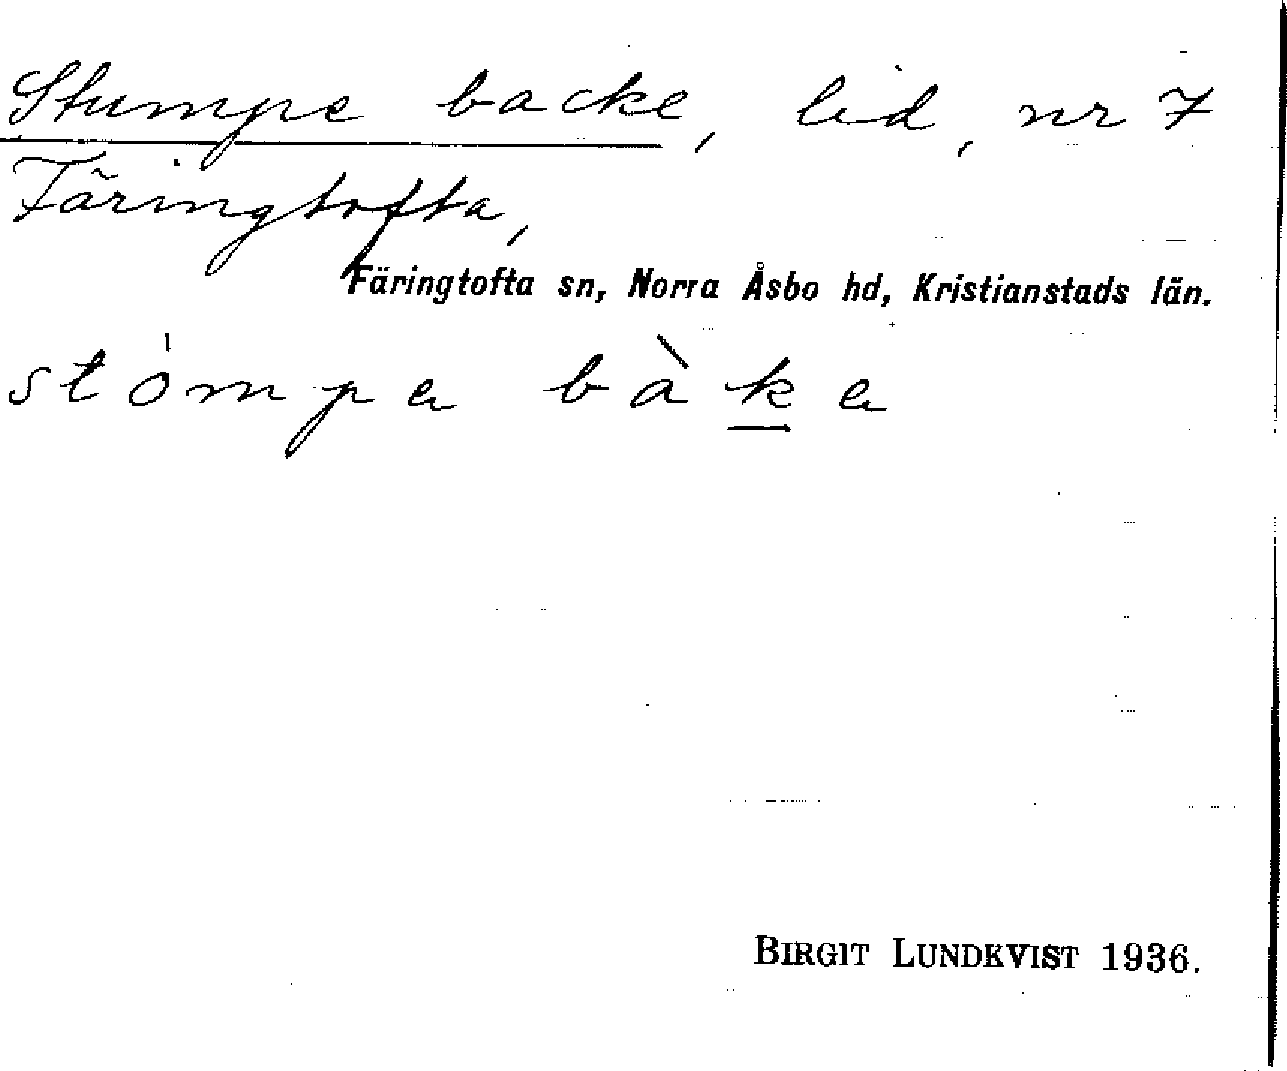 Stumpe backe, lid, nr 7
Färingtofta,
Färingtofta sn, Norra Åsbo hd, Kristianstads län.
stómpɐ bàk̲ɐ
BIRGIT LUNDKVIST 1936.